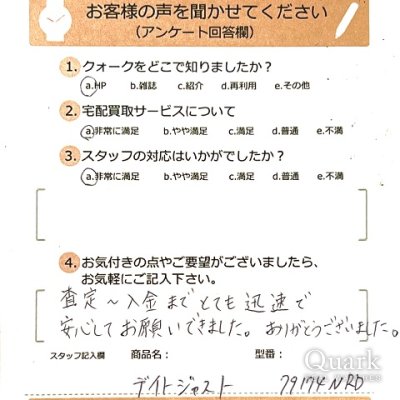 お客様の声を聞かせてください
(アンケート回答欄)
1. クォークをどこで知りましたか？
a.HP b.雑誌 c.紹介 d.再利用 e.その他
2. 宅配買取サービスについて
a.非常に満足 b.やや満足 c.満足 d.普通 e.不満
3. スタッフの対応はいかがでしたか？
a.非常に満足 b.やや満足 c.満足 d.普通 e.不満
4. お気付きの点やご要望がございましたら、
お気軽にご記入下さい。
査定～入金までとても迅速で
安心してお願いできました。ありがとうございました。
スタッフ記入欄 商品名： 型番：
デイトジャスト 79174NRD
Quark